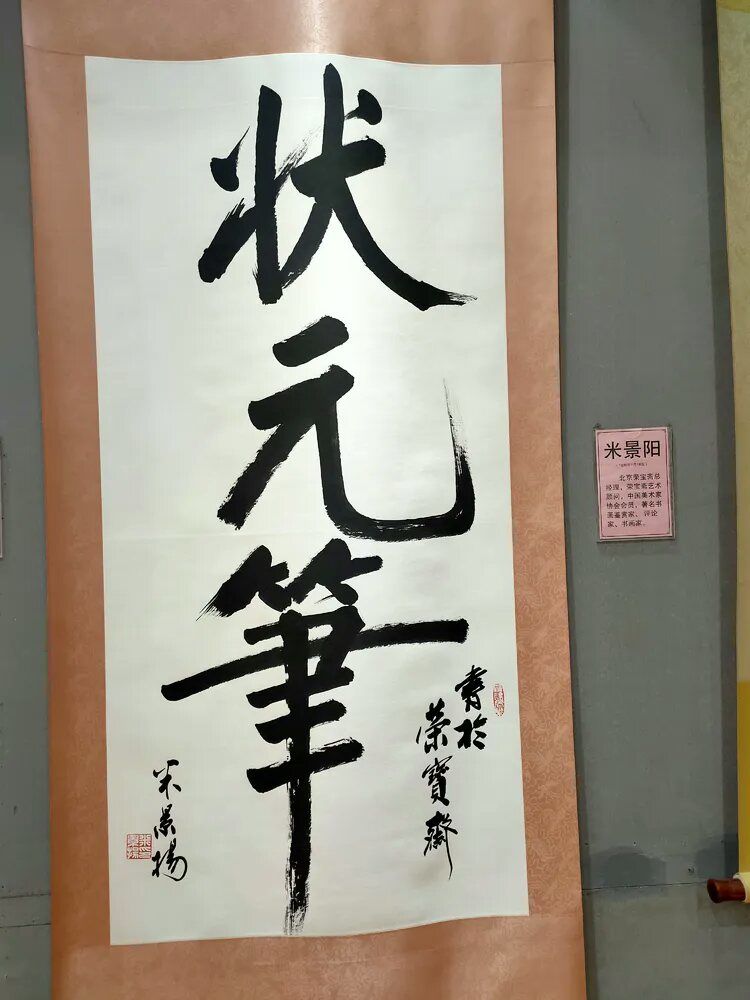 状元筆
書於
荣寶齋
米景揚
米景阳
北京荣宝斋总
经理、荣宝斋艺术
顾问，中国美术家
协会会员，著名书
画鉴赏家、评论
家、书画家。